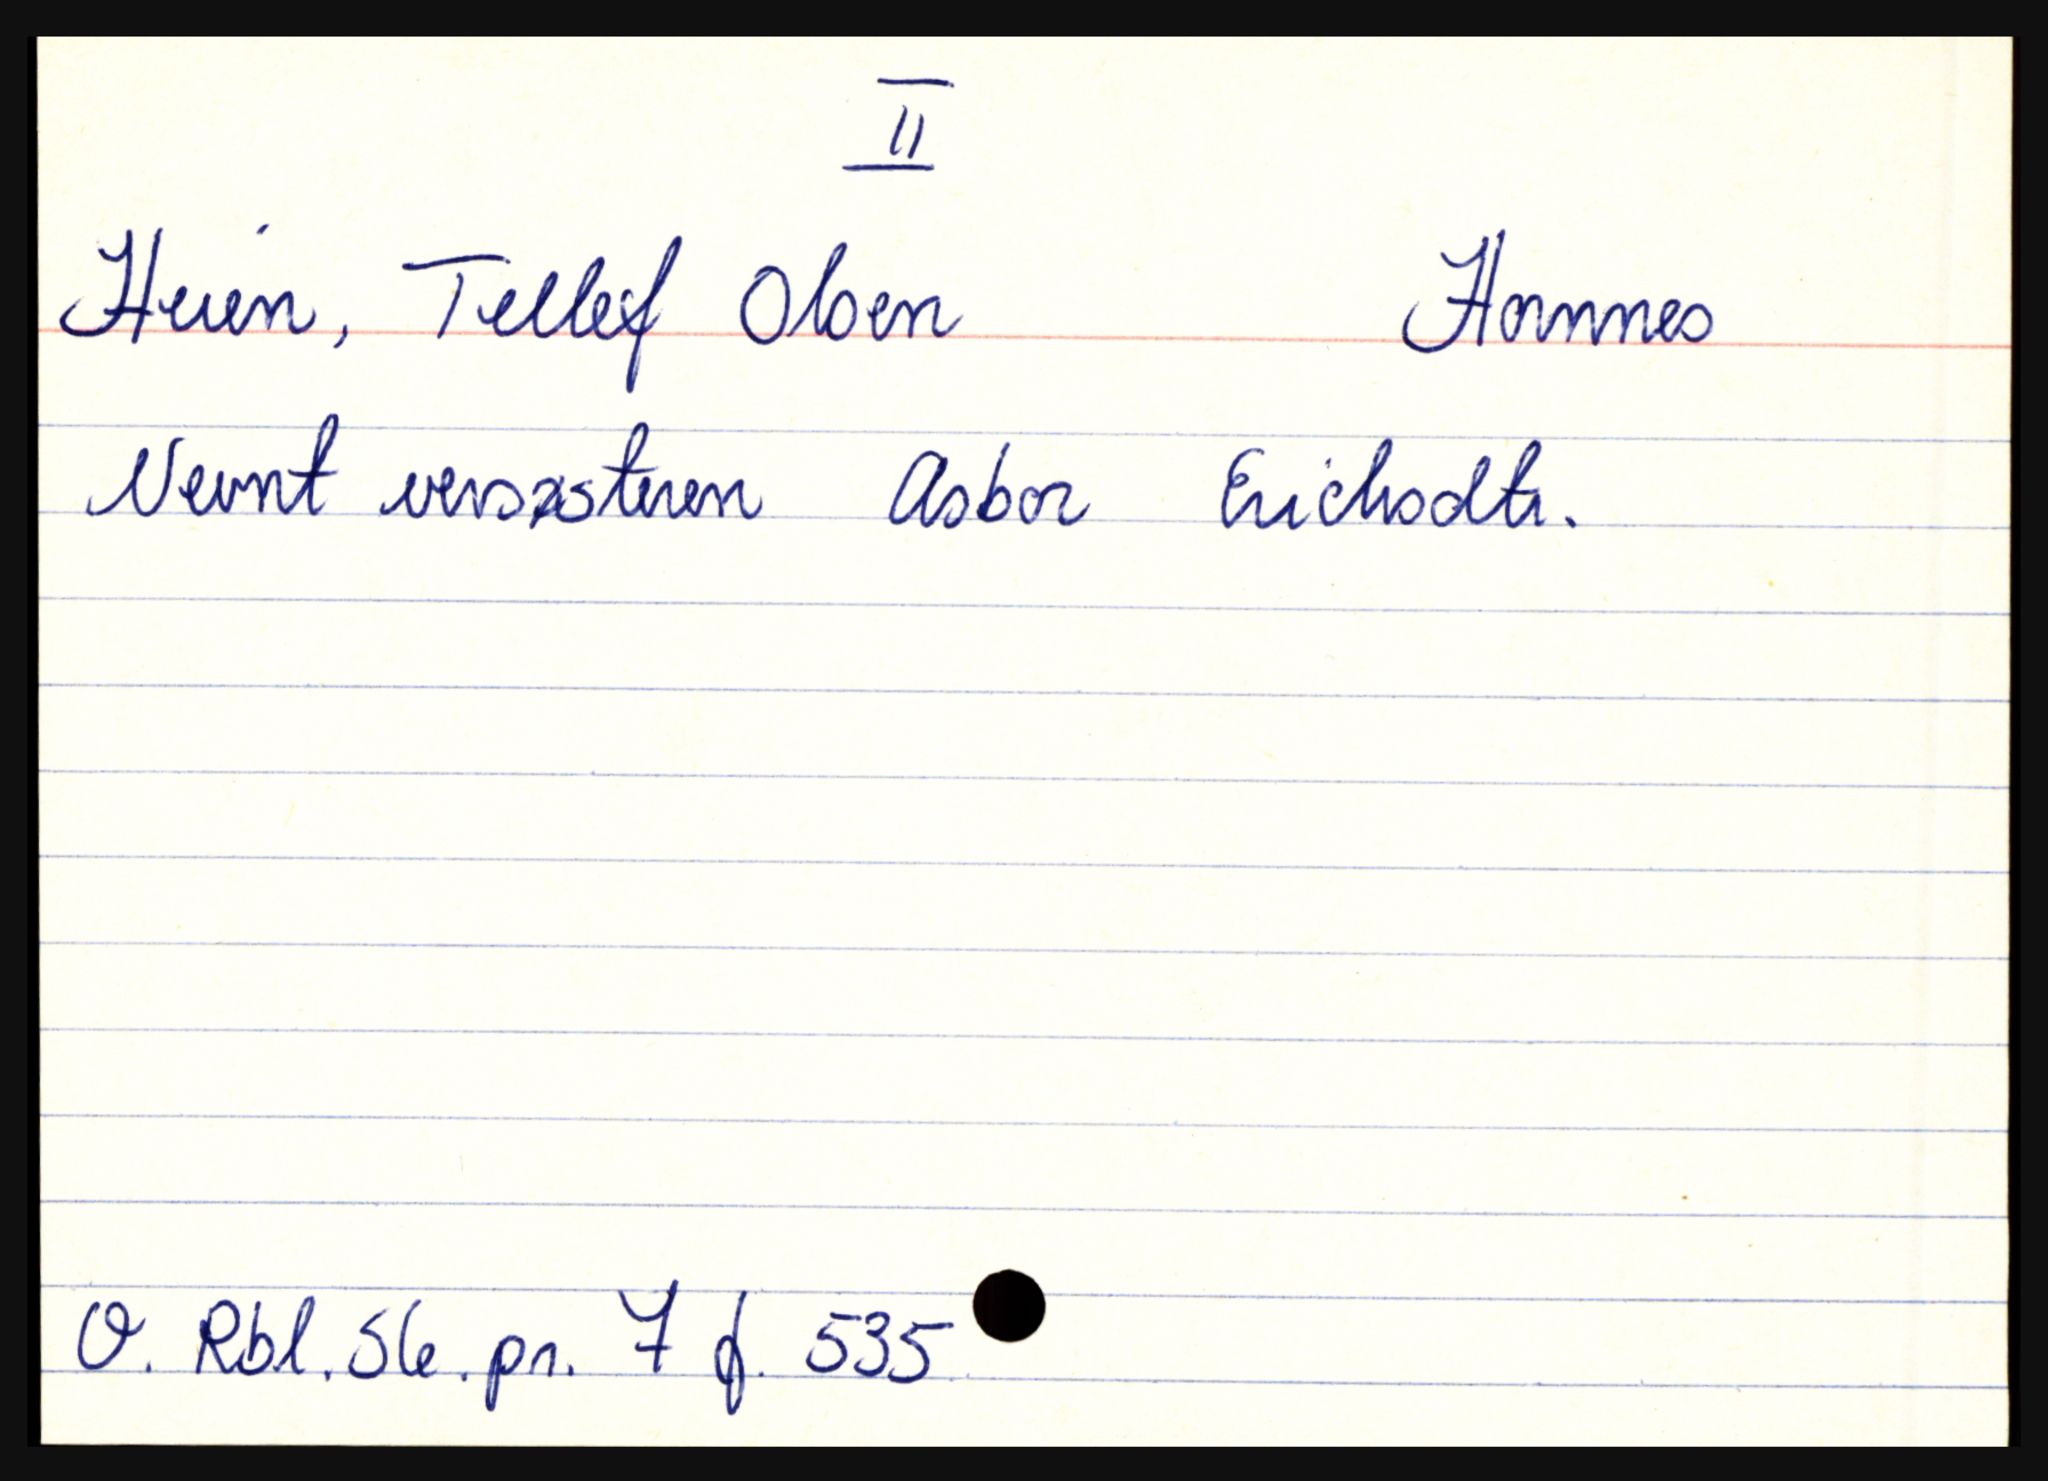 II
Heien, Tellef Olsen Hornnes
Nevnt versøsteren Asbor Erichsdtr.
O. Rbl. S6. pr. 7 f. 535